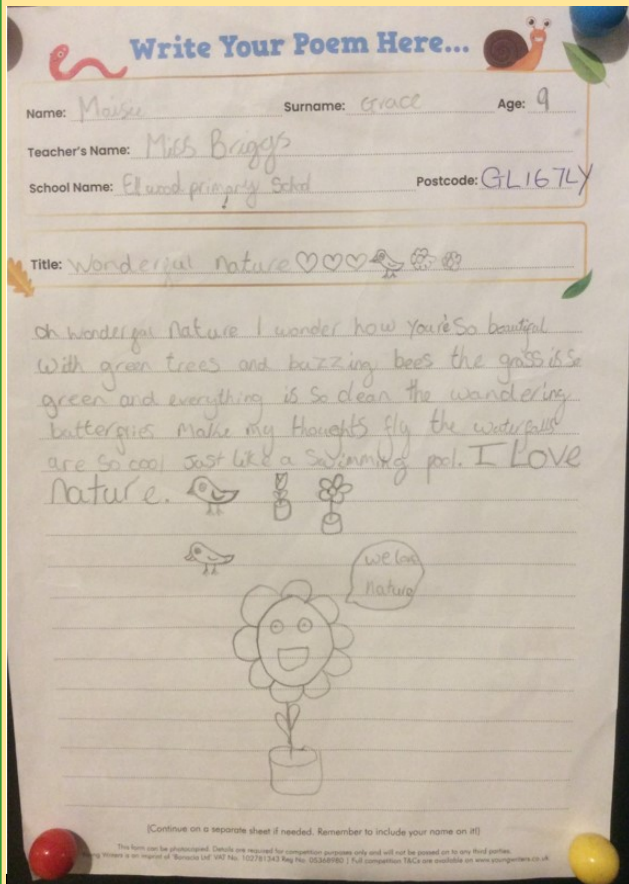 Write Your Poem Here...
Name: Maisie Surname: Grace Age: 9
Teacher's Name: Miss Briggs
School Name: Ellwood primary School Postcode: GL167LY
Title: Wonderful nature
oh wonderful nature I wonder how you're so beautiful
with green trees and buzzing bees the grass is so
green and everything is so clean the wandering
butterflies make my thoughts fly the waterfalls
are so cool just like a swimming pool. I Love
nature.
we love
nature
(Continue on a separate sheet if needed. Remember to include your name on it!)
This form can be photocopied. Details are required for competition purposes only and will not be passed on to any third parties.
Young Writers is an imprint of 'Bonacia Ltd' VAT No. 102781343 Reg No. 05368980 | Full competition T&Cs are available on www.youngwriters.co.uk